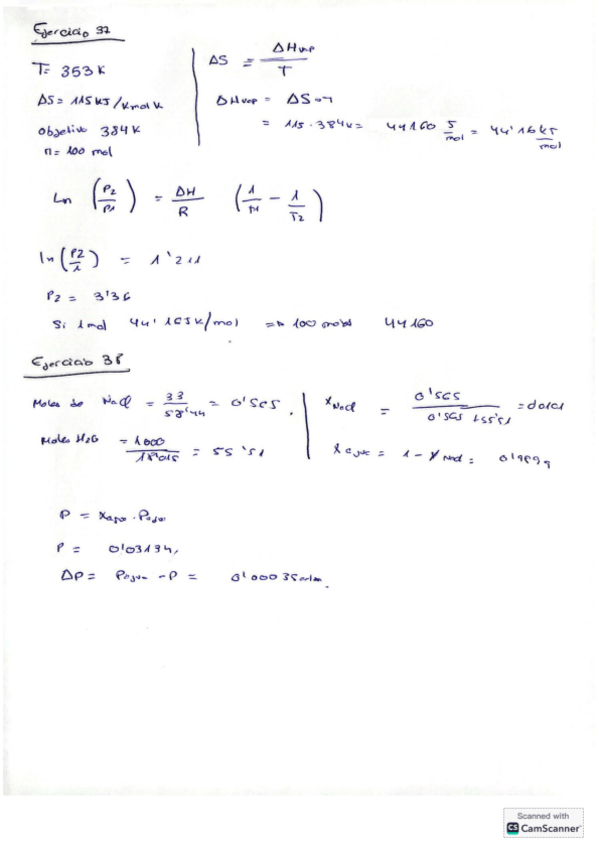 Ejercicio 37
T= 353 K
ΔS = 115 kJ/kmol K
objetivo 384 K
n = 100 mol
ΔS = ΔHvap / T
ΔHvap = ΔS · T
= 115 · 384 K = 44160 J/mol = 44'16 kJ/mol
Ln (P2/P1) = ΔH/R (1/T1 - 1/T2)
ln (P2/1) = 1'211
P2 = 3'36
Si 1 mol 44'16 => 100 moles 44160
Ejercicio 38
Moles de NaCl = 33/58'44 = 0'565
Moles H2O = 1000/18'015 = 55'51
XNaCl = 0'565 / 0'565 + 55'51 =
Xagua = 1 - XNaCl = 0'9899
P = Xagua · Pagua
P = 0'03134
ΔP = Pagua - P = 0'00035 atm.
Scanned with
CS CamScanner